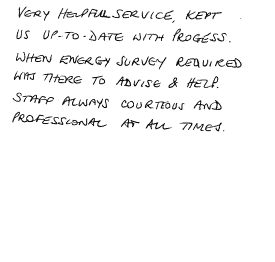 VERY HELPFUL SERVICE, KEPT
US UP-TO-DATE WITH PROGESS.
WHEN ENERGY SURVEY REQUIRED
WAS THERE TO ADVISE & HELP.
STAFF ALWAYS COURTIOUS AND
PROFESSIONAL AT ALL TIMES.